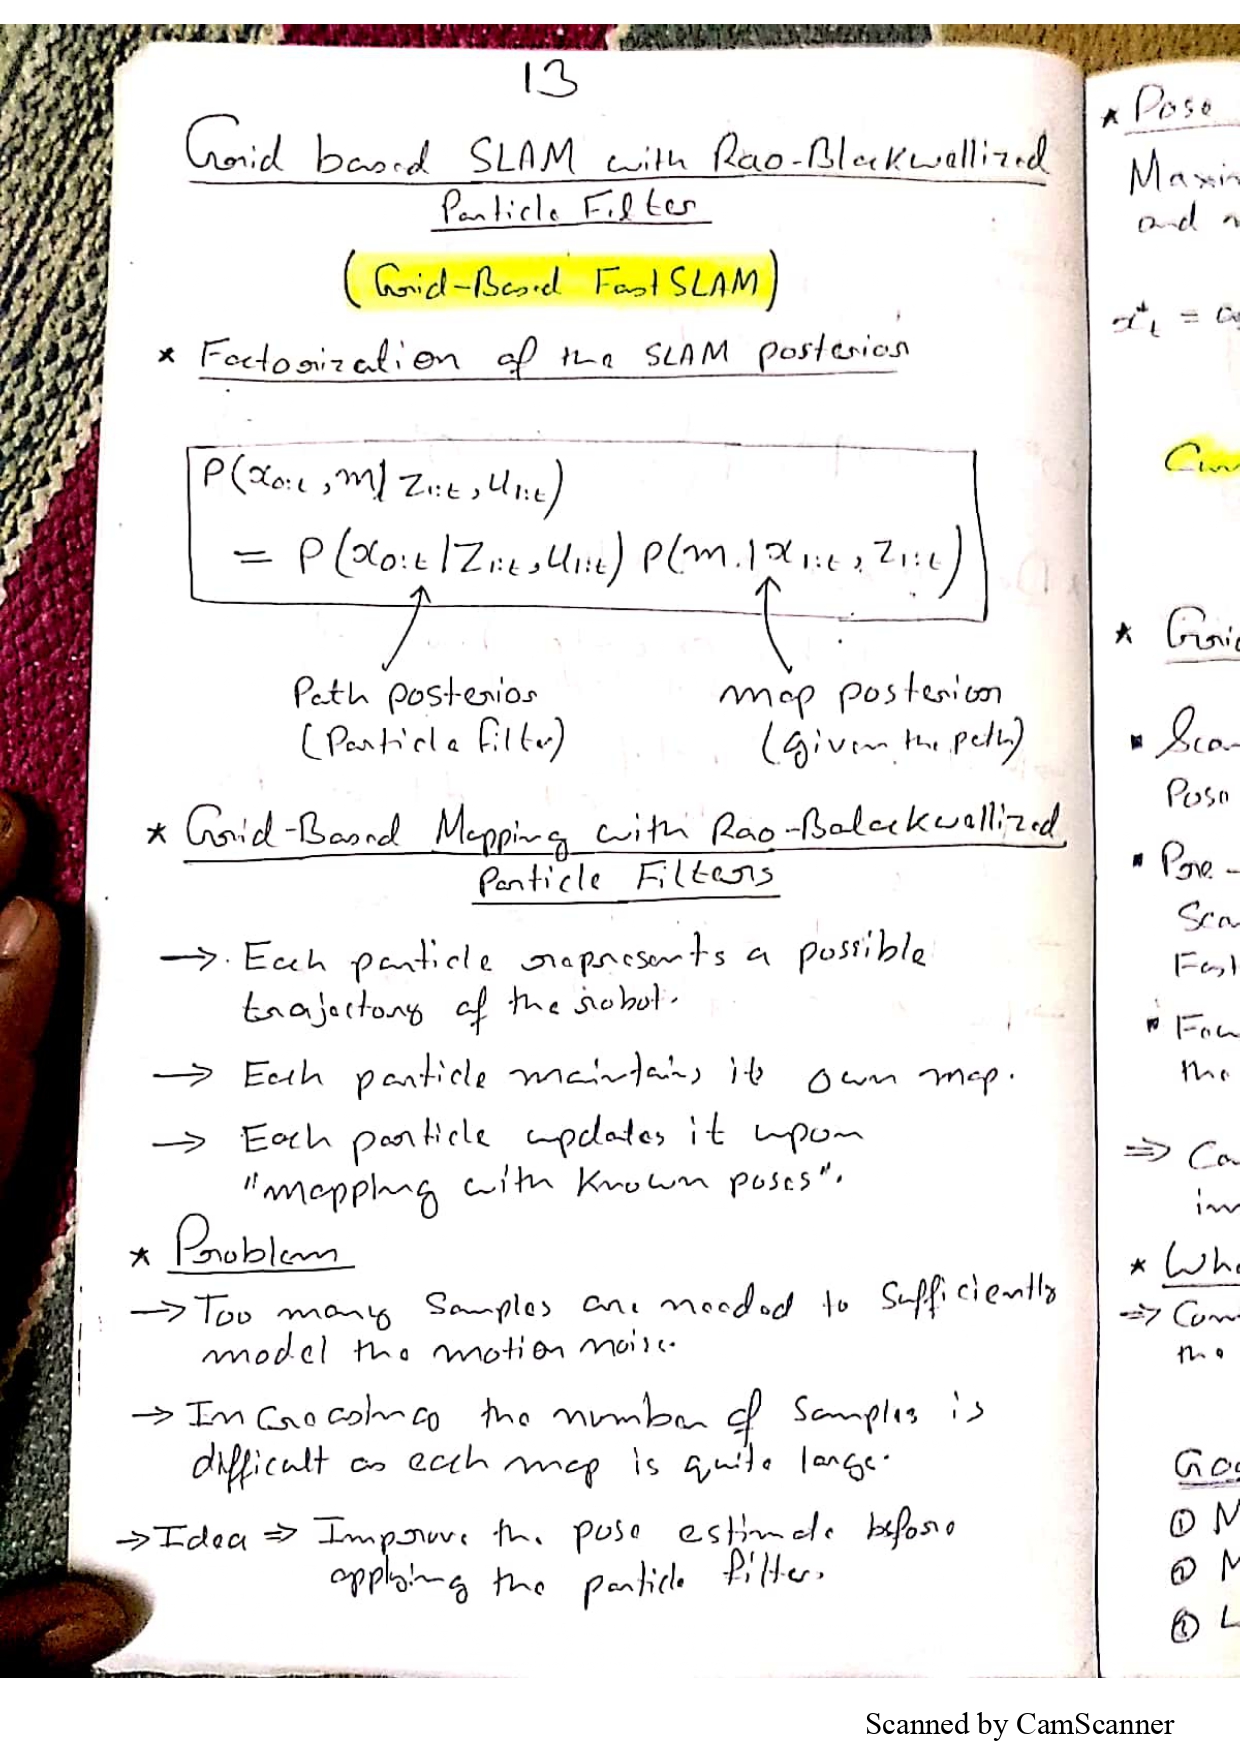 13
Grid based SLAM with Rao-Blackwellized
Particle Filter
(Grid-Based FastSLAM)
* Factorization of the SLAM posterior
P(x0:t, m | z1:t, u1:t)
= P(x0:t | z1:t, u1:t) P(m. | x1:t, z1:t)
Path posterior
(Particle filter)
map posterior
(given the path)
* Grid-Based Mapping with Rao-Balackwellized
Particle Filters
→ Each particle represents a possible
trajectory of the robot.
→ Each particle maintains its own map.
→ Each particle updates it upon
"mapping with known poses".
* Problem
→ Too many samples are needed to sufficiently
model the motion noise.
→ the number of samples is
difficult as each map is quite large.
→ Idea ⇒ Improve the pose estimate before
applying the particle filter.
* Pose
and
x*t =
*
Pose
the
⇒
*
⇒
the
① M
② M
③ L
Scanned by CamScanner